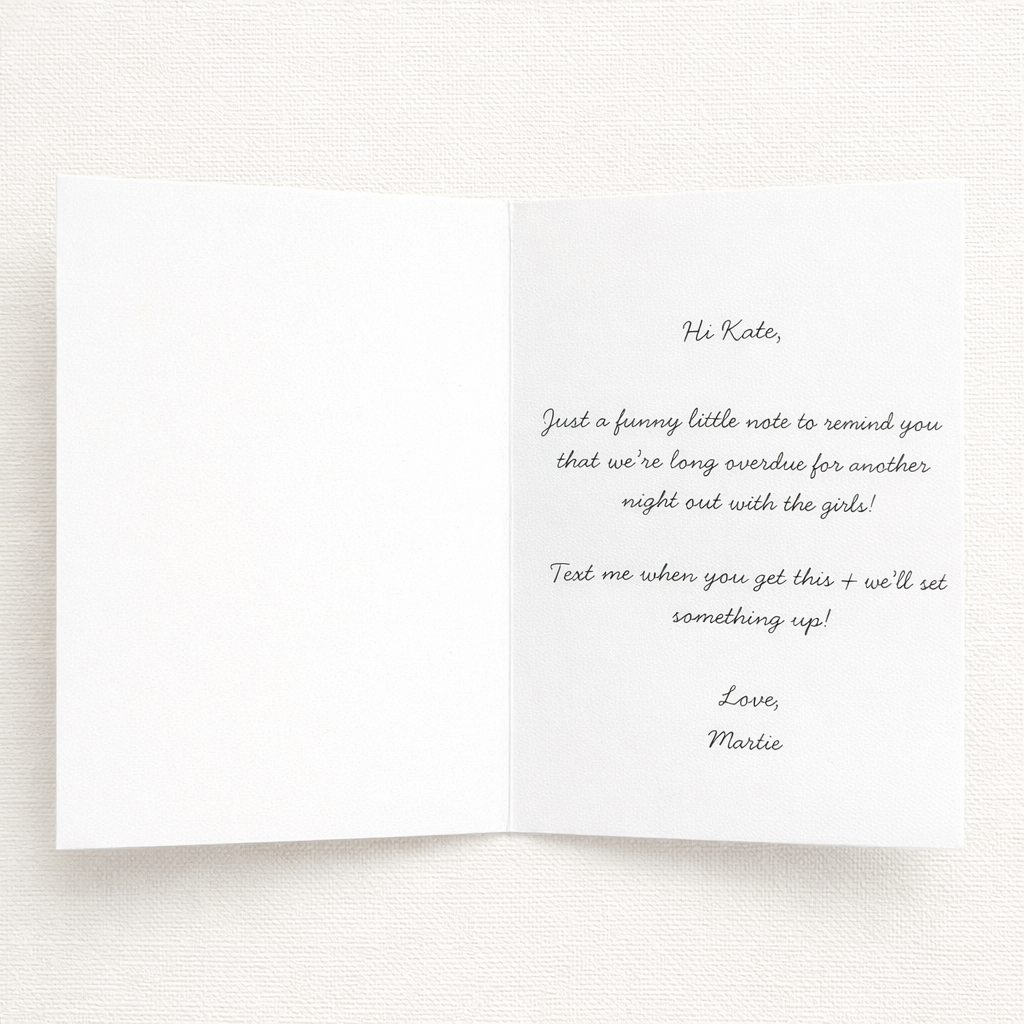 Hi Kate,
Just a funny little note to remind you
that we're long overdue for another
night out with the girls!
Text me when you get this + we'll set
something up!
Love,
Martie